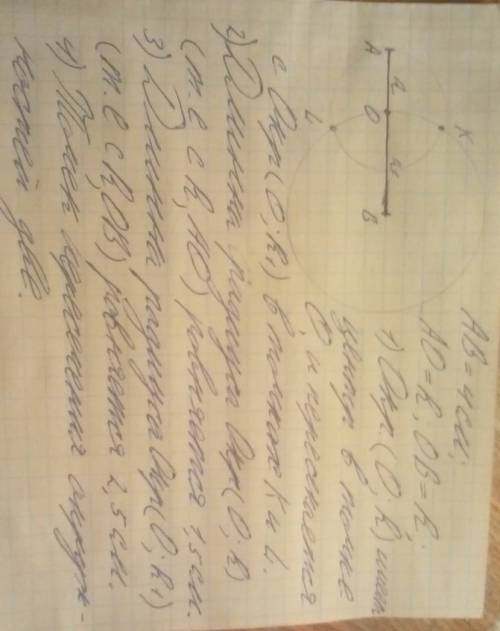 AB = 4 см.
AO = R; OB = R.
1) Окр(O; R) имеет
центр в точке
O и пересекается
с Окр(O; R₁) в точках K и L.
2) Длинна радиуса Окр(O, R)
(т.е с R, AO) равняется 1,5 см.
3) Длинна радиуса Окр(O; R₁)
(т.е с R, OB) равняется 2,5 см.
4) Точек пересечения окруж-
ностей две.
A
O
B
K
L